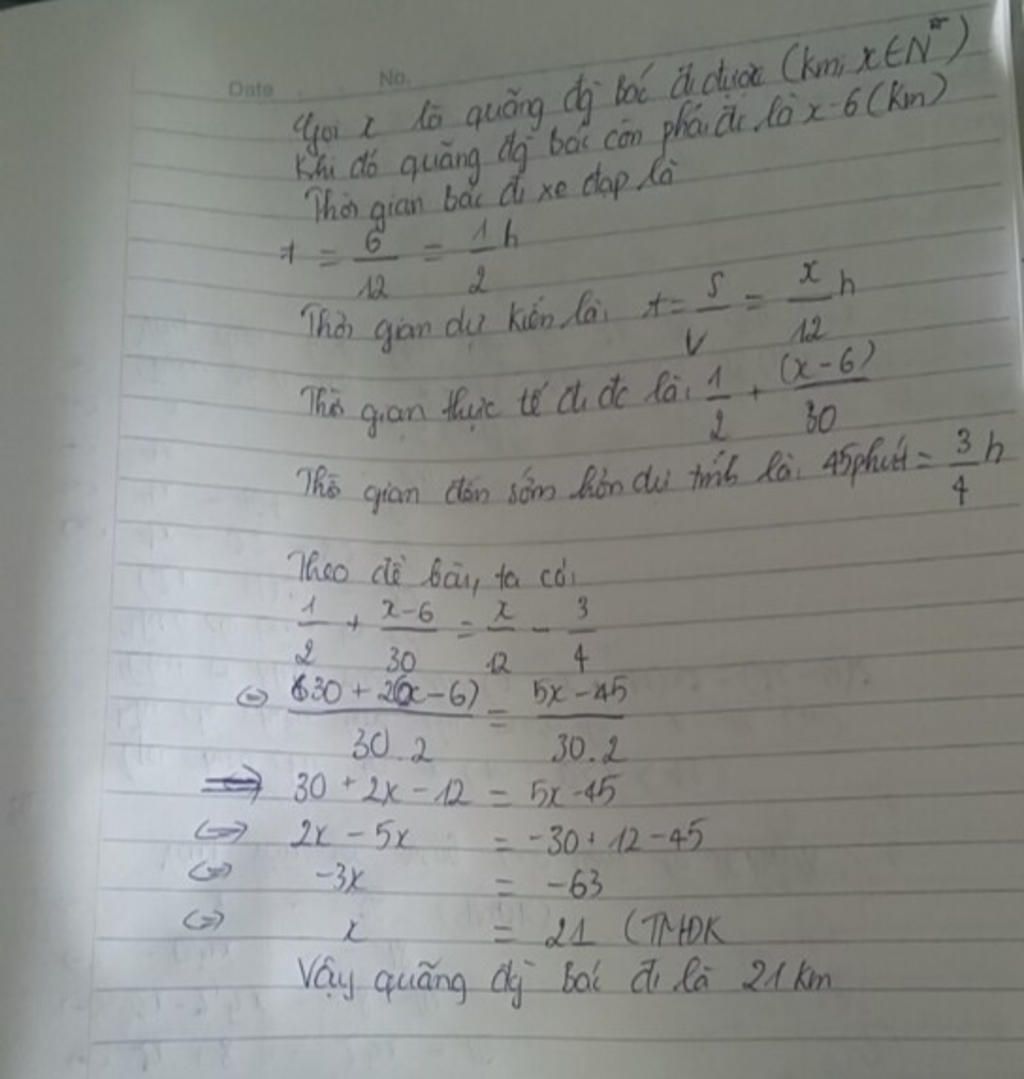 Date No.
Gọi x là quãng đg bác đi được (km, x ∈ N*)
Khi đó quãng đg bác còn phải đi là x-6 (km)
Thời gian bác đi xe đạp là
t = 6/12 = 1/2 h
Thời gian dự kiến là: t = S/V = x/12 h
Thời gian thực tế đi đc là: 1/2 + (x-6)/30
Thời gian đến sớm hơn dự tính là: 45 phút = 3/4 h
Theo đề bài, ta có:
1/2 + x-6/30 = x/12 - 3/4
⇔ 30 + 2(x-6)/30.2 = 5x-45/30.2
⇒ 30 + 2x - 12 = 5x - 45
⇔ 2x - 5x = -30 + 12 - 45
⇔ -3x = -63
⇔ x = 21 (TMĐK
Vậy quãng đg bác đi là 21 km